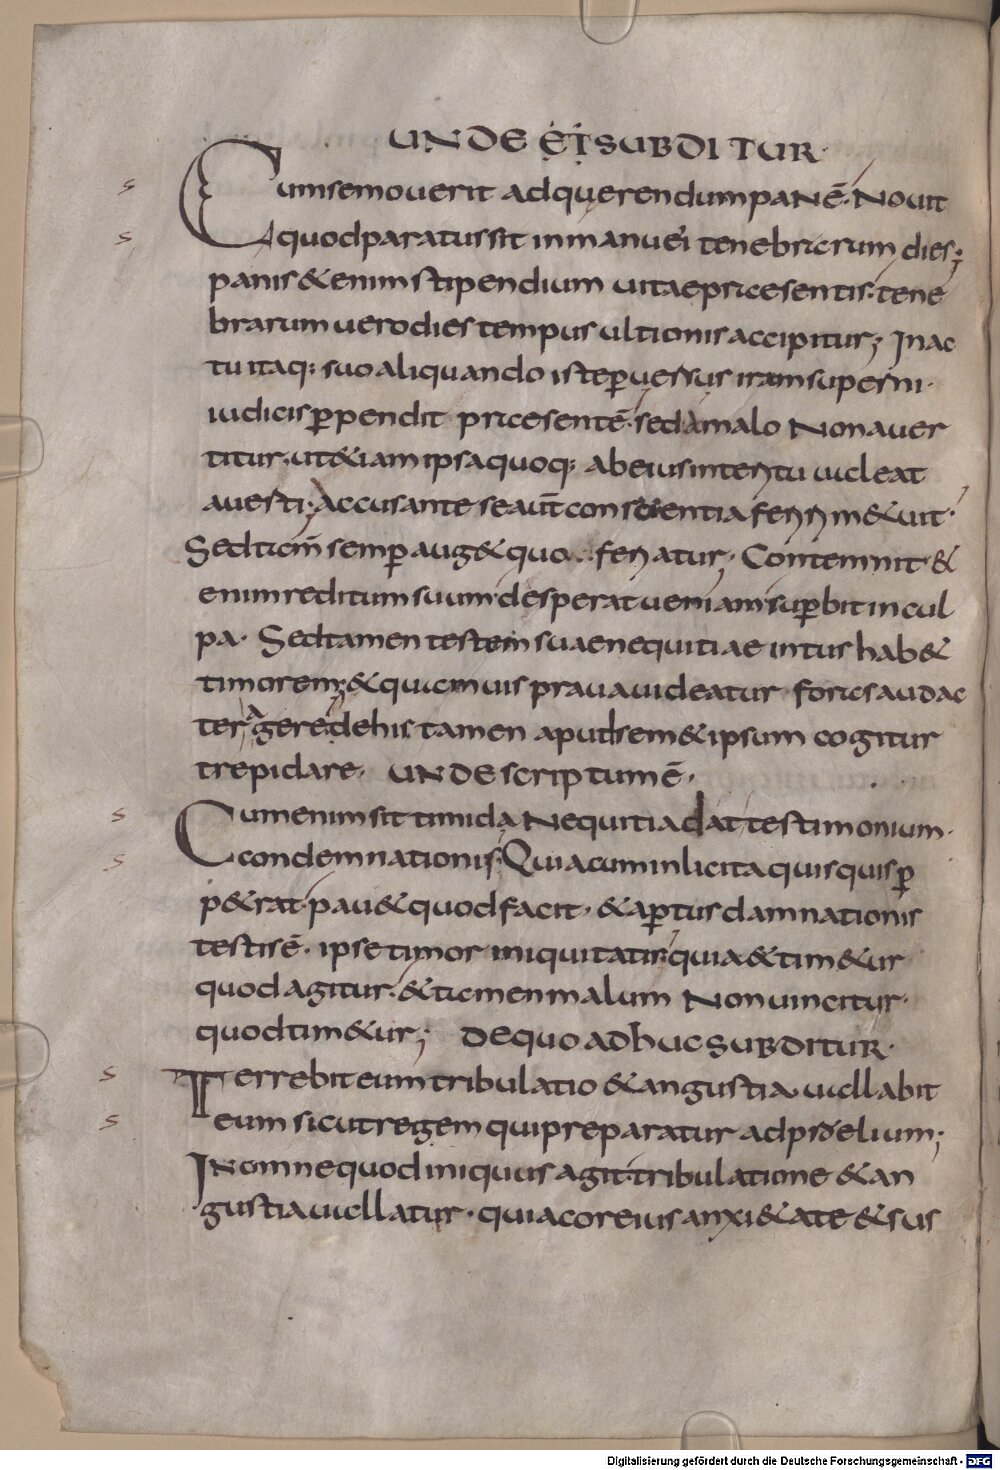 UNDE ET SUBDITUR
Cum se mouerit ad querendum panē. Nouit
quod paratus sit in manu ei tenebrarum dies;
panis & enim stipendium uitae praesentis. tene
brarum uero dies tempus ultionis accipitur; In ac
tu itaq: suo aliquando iste ꝑuersus iram superni
iudicis ꝑpendit praesentē. sed a malo Non auer
titur. ut & iam ipsa quoq: ab eius intentu uideat
auesti; Accusante se aut̄ conscientia ferir m&uit.
Sed tam̄ semꝑ aug& quo feriatur; Contemnit &
enim reditum suum. desperat ueniam. suꝑbit in cul
pa. Sed tamen testem suae nequitiae intus hab&
timorem; & quamuis praua uideatur foras audac
ter agere de his tamen aput sem& ipsum cogitur
trepidare. UNDE scriptum ē.
Cum enim sit timida Nequitia dat testimonium.
condemnationis; Quia cum inlicita quisquis ꝑ
p&rat. pau& quod facit. & aꝑtus damnationis
testis ē. ipse timor iniquitatis; quia & tim&ur
quod agitur. & tamen malum Non uincitur
quod tim&ur; DE quo adhuc SUBDITUR.
Terrebit eum tribulatio & angustia uallabit
eum sicut regem qui preparatur ad proelium;
IN omne quod iniquus agit. tribulatione & an
gustia uallatur. quia cor eius anxi&ate & sus
Digitalisierung gefördert durch die Deutsche Forschungsgemeinschaft - DFG